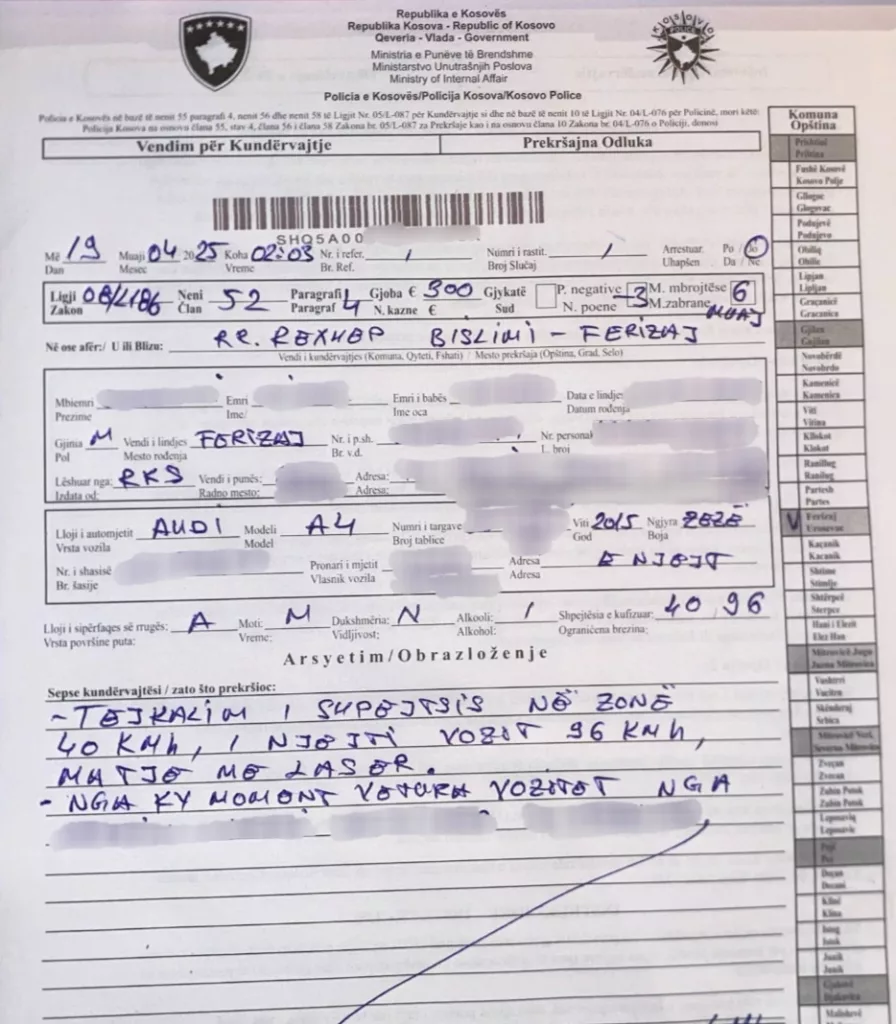 Republika e Kosovës
Republika Kosova - Republic of Kosovo
Qeveria - Vlada - Government
Ministria e Punëve të Brendshme
Ministarstvo Unutrašnjih Poslova
Ministry of Internal Affair
Policia e Kosovës/Policija Kosova/Kosovo Police
KOSOVO POLICE
Policia e Kosovës në bazë të nenit 55 paragrafi 4, nenit 56 dhe nenit 58 të Ligjit Nr. 05/L-087 për Kundërvajtje si dhe në bazë të nenit 10 të Ligjit Nr. 04/L-076 për Policinë, mori këtë:
Policija Kosova na osnovu člana 55, stav 4, člana 56 i člana 58 Zakona br. 05/L-087 za Prekršaje kao i na osnovu člana 10 Zakona br. 04/L-076 o Policiji, donosi
Vendim për Kundërvajtje Prekršajna Odluka
SHQ5A00
Më 19 Muaji 04 2025 Koha 02:03 Nr. i refer. / Numri i rastit. / Arrestuar Po / Jo
Dan Mesec Vreme Br. Ref. Broj Slučaj Uhapšen Da / Ne
Ligji 08/L186 Neni 52 Paragrafi 4 Gjoba € 300 Gjykatë P. negative -3 M. mbrojtëse 6
Zakon Član Paragraf N. kazne € Sud N. poene M.zabrane MUAJ
Në ose afër:/ U ili Blizu: RR. REXHEP BISLIMI - FERIZAJ
Vendi i kundërvajtjes (Komuna, Qyteti, Fshati) / Mesto prekršaja (Opština, Grad, Selo)
Mbiemri Emri Emri i babës Data e lindjes
Prezime Ime/ Ime oca Datum rođenja
Gjinia M Vendi i lindjes FERIZAJ Nr. i p.sh. Nr. personal
Pol Mesto rođenja Br. v.d. L. broj
Lëshuar nga: RKS Vendi i punës: Adresa:
Izdata od: Radno mesto: Adresa:
Lloji i automjetit AUDI Modeli A4 Numri i targave Viti 2015 Ngjyra ZEZË
Vrsta vozila Model Broj tablice God Boja
Nr. i shasisë Pronari i mjetit Adresa E NJEJT
Br. šasije Vlasnik vozila Adresa
Lloji i sipërfaqes së rrugës: A Moti: M Dukshmëria: N Alkooli: / Shpejtësia e kufizuar: 40, 96
Vrsta površine puta: Vreme: Vidljivost: Alkohol: Ograničena brezina:
Arsyetim/Obrazloženje
Sepse kundërvajtësi / zato što prekršioc:
- TEJKALIM I SHPEJTSIS NË ZONË
40 KMh, I NJEJTI VOZIT 96 KMh,
MATJE ME LASER.
- NGA KY MOMENT VETURA VOZITET NGA
Komuna
Opština
Prishtinë
Priština
Fushë Kosovë
Kosovo Polje
Gllogoc
Glogovac
Podujevë
Podujevo
Obiliq
Obilić
Lipjan
Lipljan
Graçanicë
Gračanica
Gjilan
Gnjilane
Novobërdë
Novobrdo
Kamenicë
Kamenica
Viti
Vitina
Kllokot
Klokot
Ranillug
Ranilug
Partesh
Parteš
V Ferizaj
Urosevac
Kaçanik
Kačanik
Shtime
Štimlje
Shtërpcë
Štrpce
Hani i Elezit
Elez Han
Mitrovicë Jugu
Južna Mitrovica
Vushtrri
Vučitrn
Skënderaj
Srbica
Zveçan
Zvečan
Zubin Potok
Zubin Potok
Leposaviq
Leposavić
Pejë
Peć
Deçan
Dečani
Klinë
Klina
Istog
Istok
Junik
Junik
Gjakovë
Đakovica
Malishevë